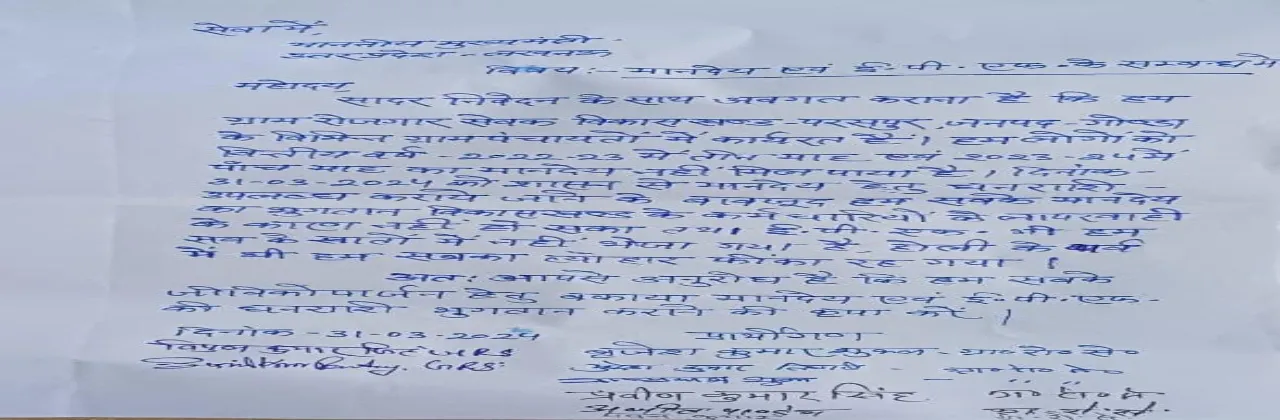 सेवा में,
माननीय मुख्यमंत्री
उत्तर प्रदेश - लखनऊ
विषय :- मानदेय एवं ई.पी.एफ. के सम्बन्ध में
महोदय
सादर निवेदन के साथ अवगत कराना है कि हम
ग्राम रोजगार सेवक विकास खण्ड - परसपुर, जनपद - गोण्डा
के विभिन्न ग्राम पंचायतों में कार्यरत है। हम लोगों को
वित्तीय वर्ष - 2022-23 में तीन माह एवं 2023-24 में
पाँच माह का मानदेय नहीं मिल पाया है। दिनांक -
31-03-2024 को शासन से मानदेय हेतु धनराशि -
उपलब्ध कराये जाने के बावजूद हम सबके मानदेय
का भुगतान विकासखण्ड के कर्मचारियों के लापरवाही
के कारण नहीं हो सका तथा ई.पी.एफ. भी हम
सब के खातों में नहीं भेजा गया है होली के पर्व
में भी हम सबका त्योहार फीका रह गया।
अतः आपसे अनुरोध है कि हम सबके
जीविकोपार्जन हेतु बकाया मानदेय एवं ई.पी.एफ.
की धनराशी भुगतान कराने की कृपा करें।
दिनांक - 31-03-2024 प्रार्थीगण
कुमार GRS बृजेश कुमार शुक्ल - ग्रा० रो० से०
GRS कुमार तिवारी - ग्रा० रो० से०
प्रवीण कुमार सिंह ग्रा० रो० से०